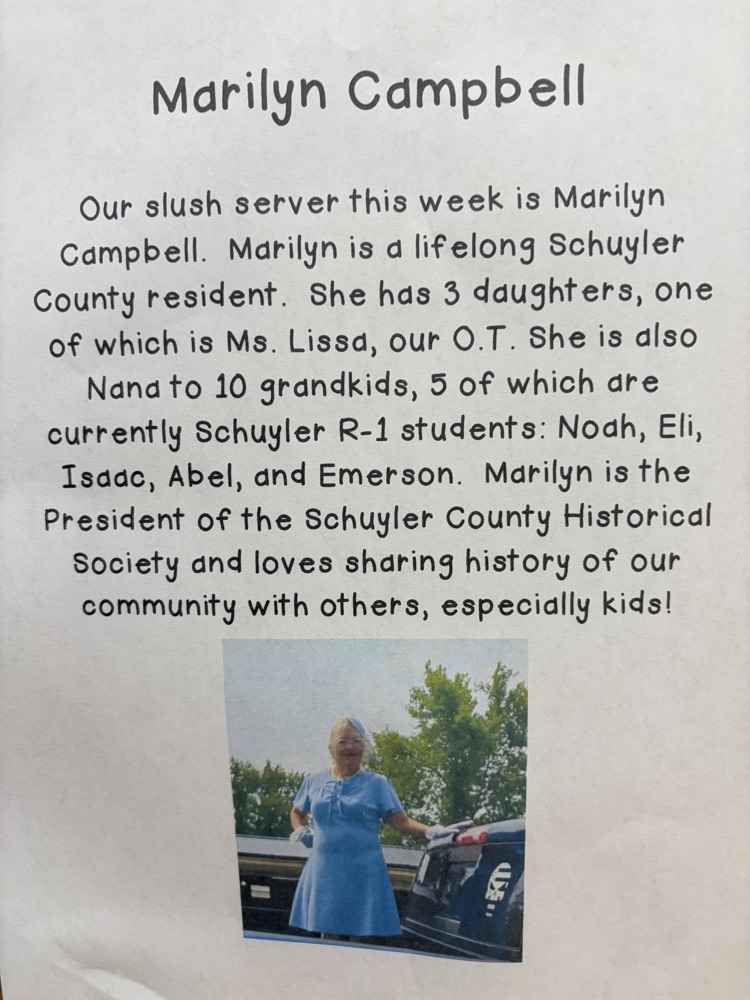 Marilyn Campbell
Our slush server this week is Marilyn
Campbell. Marilyn is a lifelong Schuyler
County resident. She has 3 daughters, one
of which is Ms. Lissa, our O.T. She is also
Nana to 10 grandkids, 5 of which are
currently Schuyler R-1 students: Noah, Eli,
Isaac, Abel, and Emerson. Marilyn is the
President of the Schuyler County Historical
Society and loves sharing history of our
community with others, especially kids!